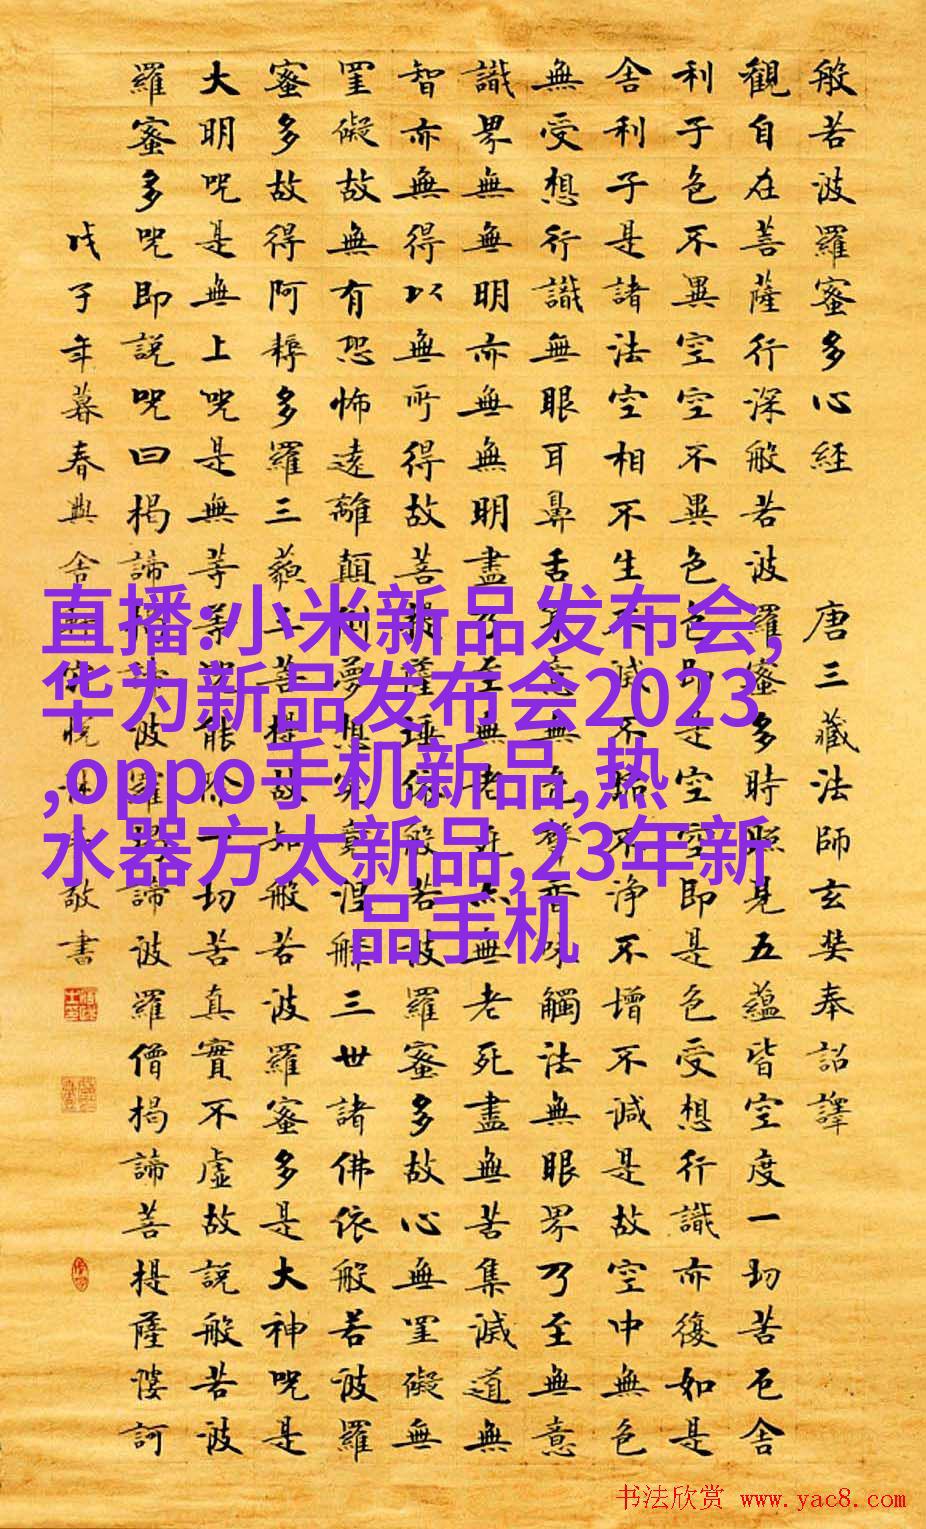 般若波羅蜜多心經　唐三藏法師玄奘奉詔譯
觀自在菩薩行深般若波羅蜜多時照見五蘊皆空度一切苦厄舍
利子色不異空空不異色色即是空空即是色受想行識亦復如是
舍利子是諸法空相不生不滅不垢不淨不增不減是故空中無色
無受想行識無眼耳鼻舌身意無色聲香味觸法無眼界乃至無意
識界無無明亦無無明盡乃至無老死亦無老死盡無苦集滅道無
智亦無得以無所得故菩提薩埵依般若波羅蜜多故心無罣礙無
罣礙故無有恐怖遠離顛倒夢想究竟涅槃三世諸佛依般若波羅
蜜多故得阿耨多羅三藐三菩提故知般若波羅蜜多是大神咒是
大明咒是無上咒是無等等咒能除一切苦真實不虛故說般若波
羅蜜多咒即說咒曰揭諦揭諦波羅揭諦波羅僧揭諦菩提薩婆訶
戊子年暮春與舍敬書
直播:小米新品发布会,
华为新品发布会2023
,oppo手机新品,热
水器方太新品,23年新
品手机
书法欣赏 www.yac8.com